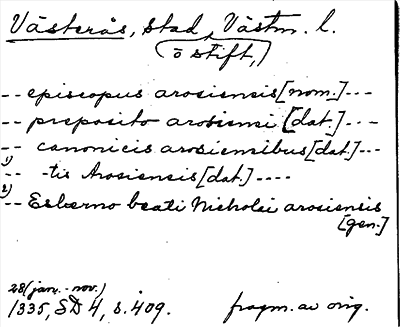 Västerås, stad, Västm. l.
(o stift,)
-- episcopus arosiensis [nom.] ---
-- preposito arosiensi [dat.] ---
-- canonicis arosiensibus [dat.] ---
1) -- -tis Arosiensis [dat.] ----
2) -- Esberno beati Nicholai arosiensis
[gen.]
28 (jan. - nov.)
1335, SD 4, s. 409. fragm. av orig.